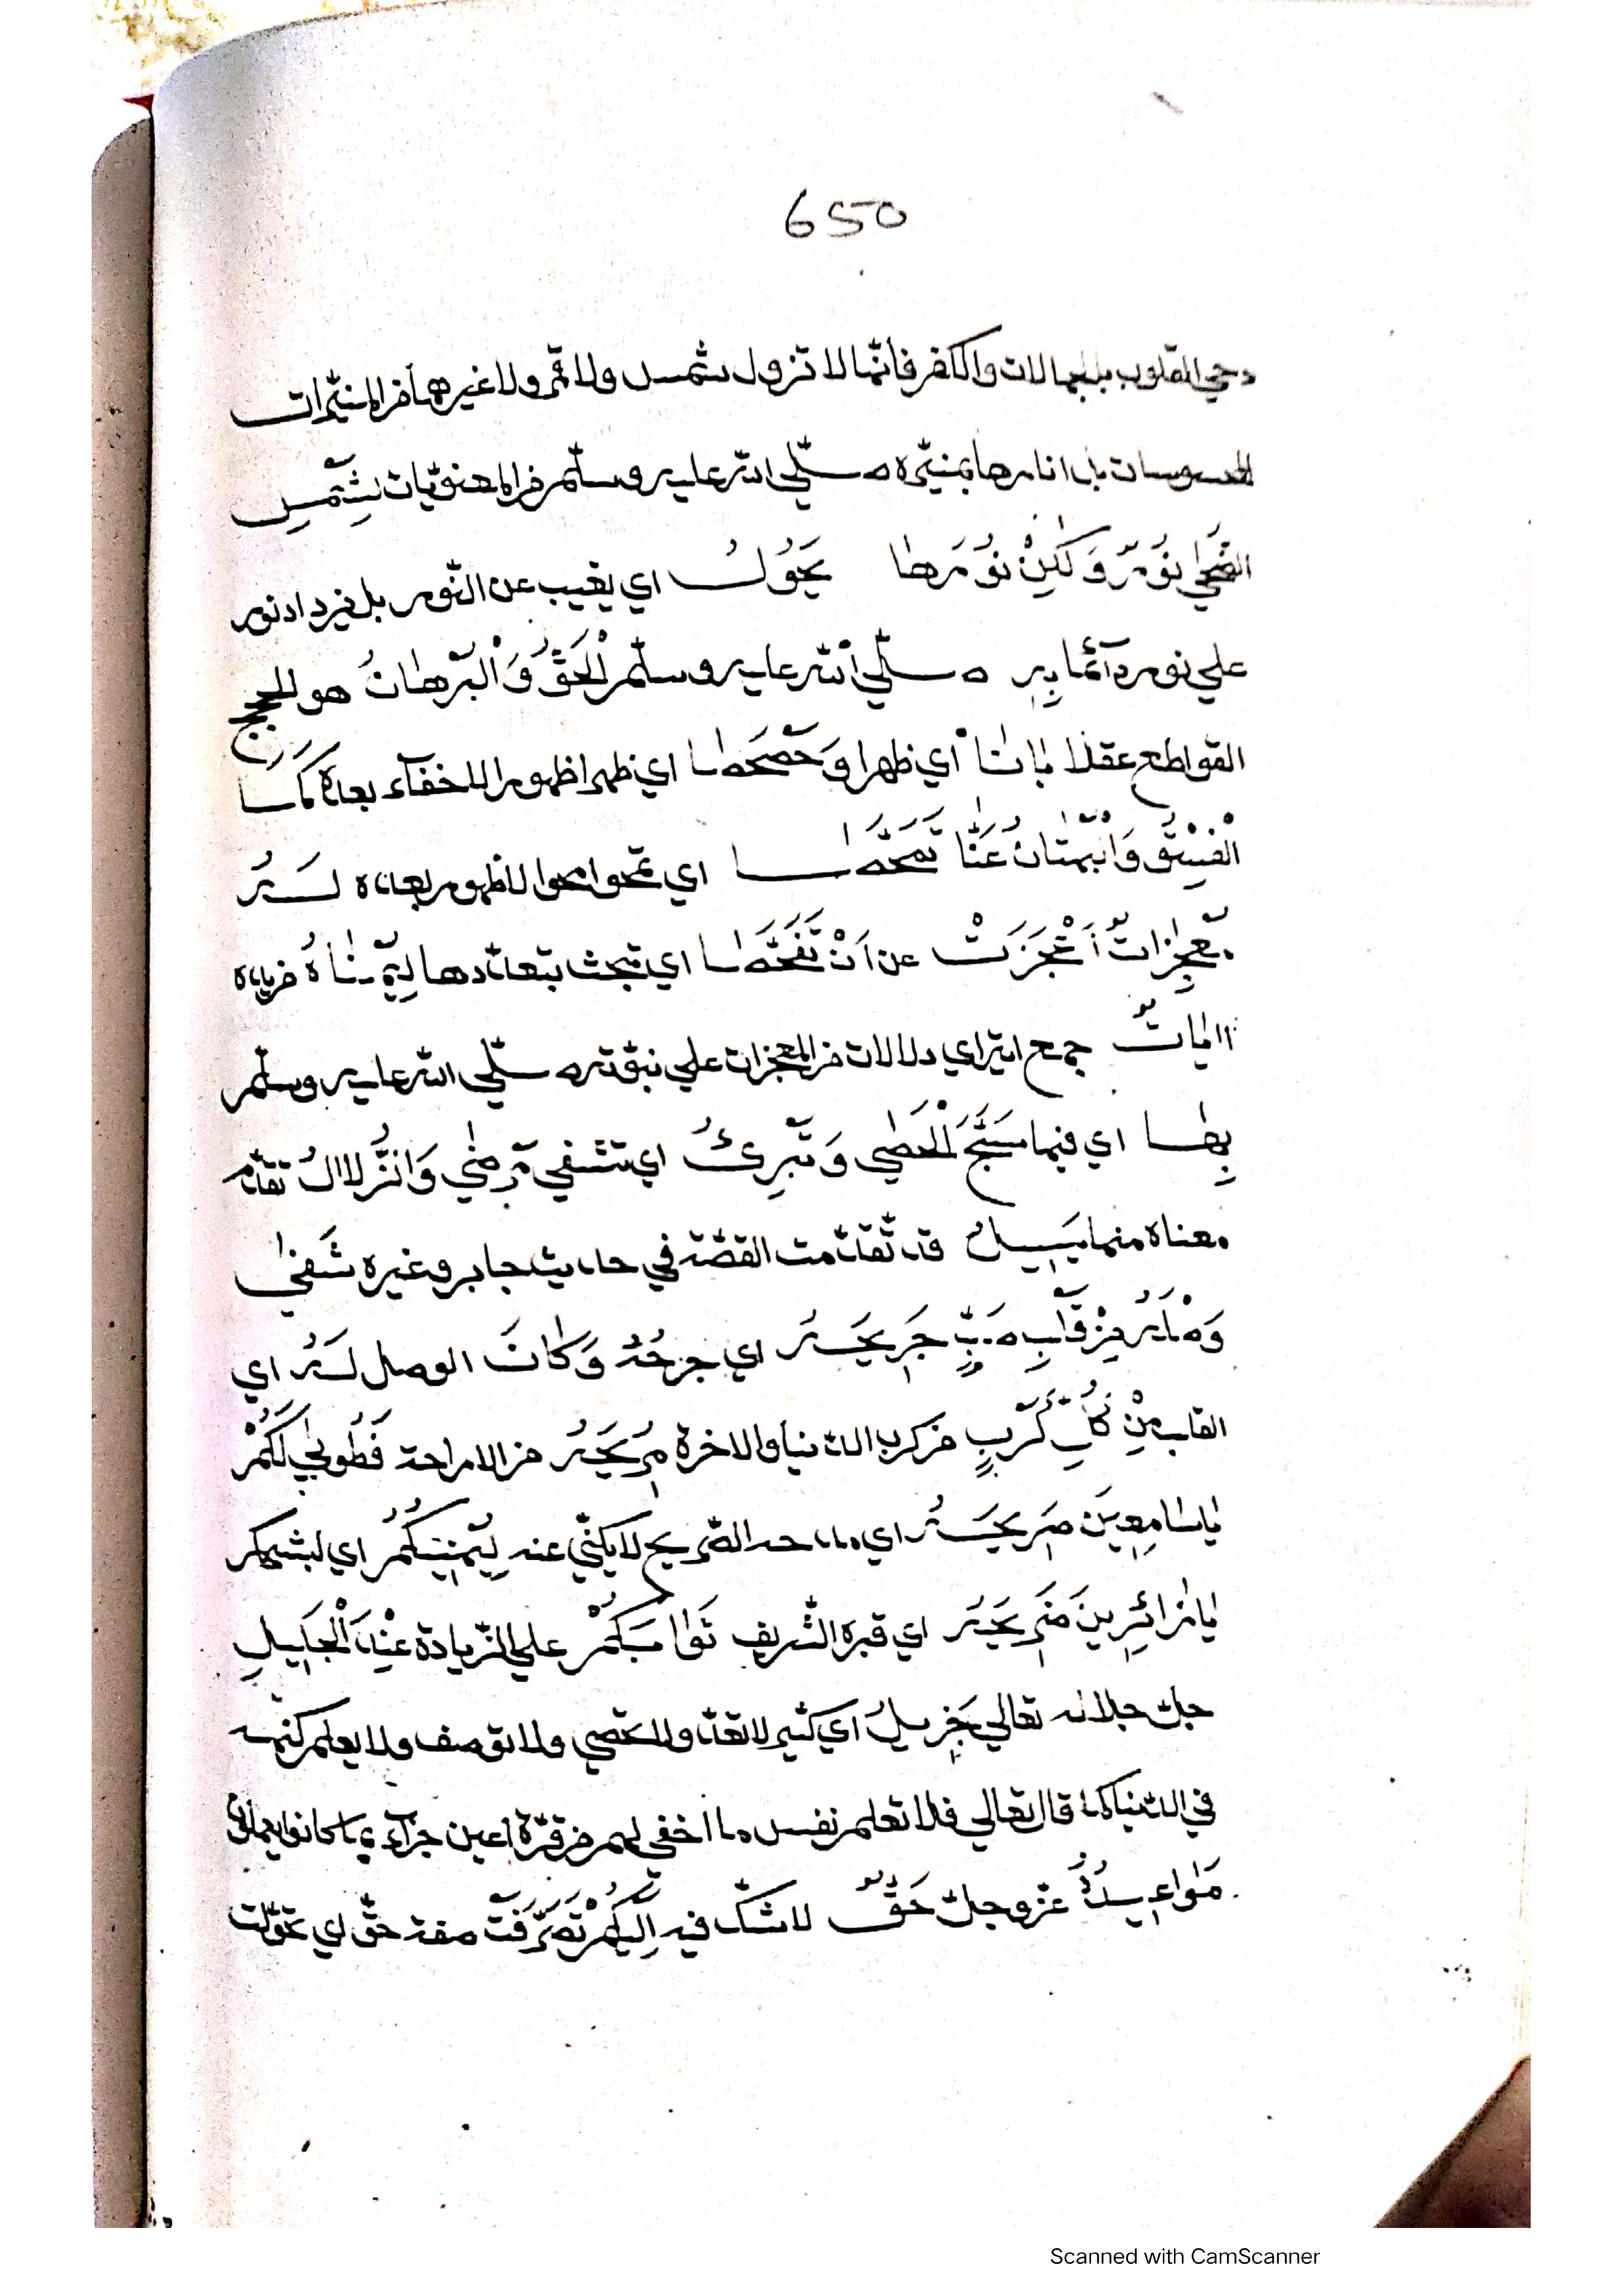 650
دجي القلوب بالجهالات والكفر فانّها لا تزول بشمس ولا قمر ولا غيرهما من المنيرات
المحسوسات بل انارها بمنيره صلّي الله عليه وسلّم من المعنويّات بشمس
الضّحي نوّر وَلٰكِنْ نُوْرُهٰا يَحُوْلُ اي يغيب عن النّور بل يزداد نور
علي نور دآئما بِهِ صلّي الله عليه وسلّم اْلحَقُّ وَالْبُرْهٰانُ هو الحجج
القواطع عقلا بٰانٰا اي ظهرا وَحَصْحَصٰا اي ظهرا ظهورا لا خفآء بعده كَمَا
الْفِسْقُ وَالْبُهْتٰانُ عَنّٰا تَمَحَّصٰا اي تمحوا محوا لا ظهور بعده لَهُ
معجِزٰاتٌ أَعْجَزَتْ عن اَنْ تَفَحَّصٰا اي تبحث بتعدّدها بِيُمْنٰاهُ من يده
اٰيٰاتٌ جمع اية اي دلالات من المعجزات علي نبوّته صلّي الله عليه وسلّم
بِهٰا اي فيها سَبَّحَ الْحَصٰي وَتُبْرِئُ اي تشفي مَرضٰي وَالزُّلاٰلُ تقدّم
معناه منها يَسِيلُ قد تقدّمت القصّة في حديث جابر وغيره شَفٰي
وَصْلُهُ مِنْ قَلْبِ صَبٍّ جَرِيحَهُ اي جرحُهُ وَكٰانَ الوصل لَهُ اي
القلب مِنْ كُلِّ كَرْبٍ من كرب الدّنيا والاخرة مُرِيحَهُ من الاراحة فَطُوبٰي لَكُمْ
يٰا سٰامِعِينَ صَرِيحَهُ اي مدحه الصّريح لا يكنّي عنه لِيُمْنِكُمُ اي لبشركم
يٰا زٰائِرِينَ ضَرِيحَهُ اي قبره الشّريف ثَوٰابُكُمْ علي الزّيادة عِنْدَ الْجَلِيلِ
جلّ جلاله تعالي جَزِيلُ اي كثير لا تعدّ ولا تحصي ولا توصف ولا يعلم كنهه
في الدّنيا كما قال تعالي فلا تعلم نفس ما اخفي لهم من قرّة اعين جزآء بما كانوا يعملون
مَوٰاعِيدُهُ عزّ وجلّ حَقٌّ لا شكّ فيه اِلَيْكُمْ تَصَرَّفَتْ صفة حقّ اي تحوّلت
Scanned with CamScanner